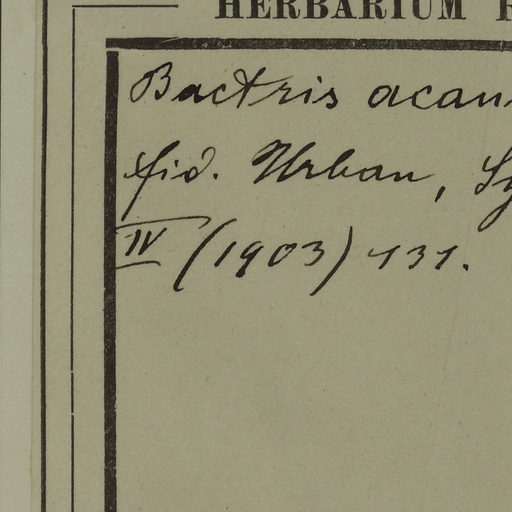 HERBARIUM
Bactris acan
fid. Urban, Sy
IV (1903) 131.